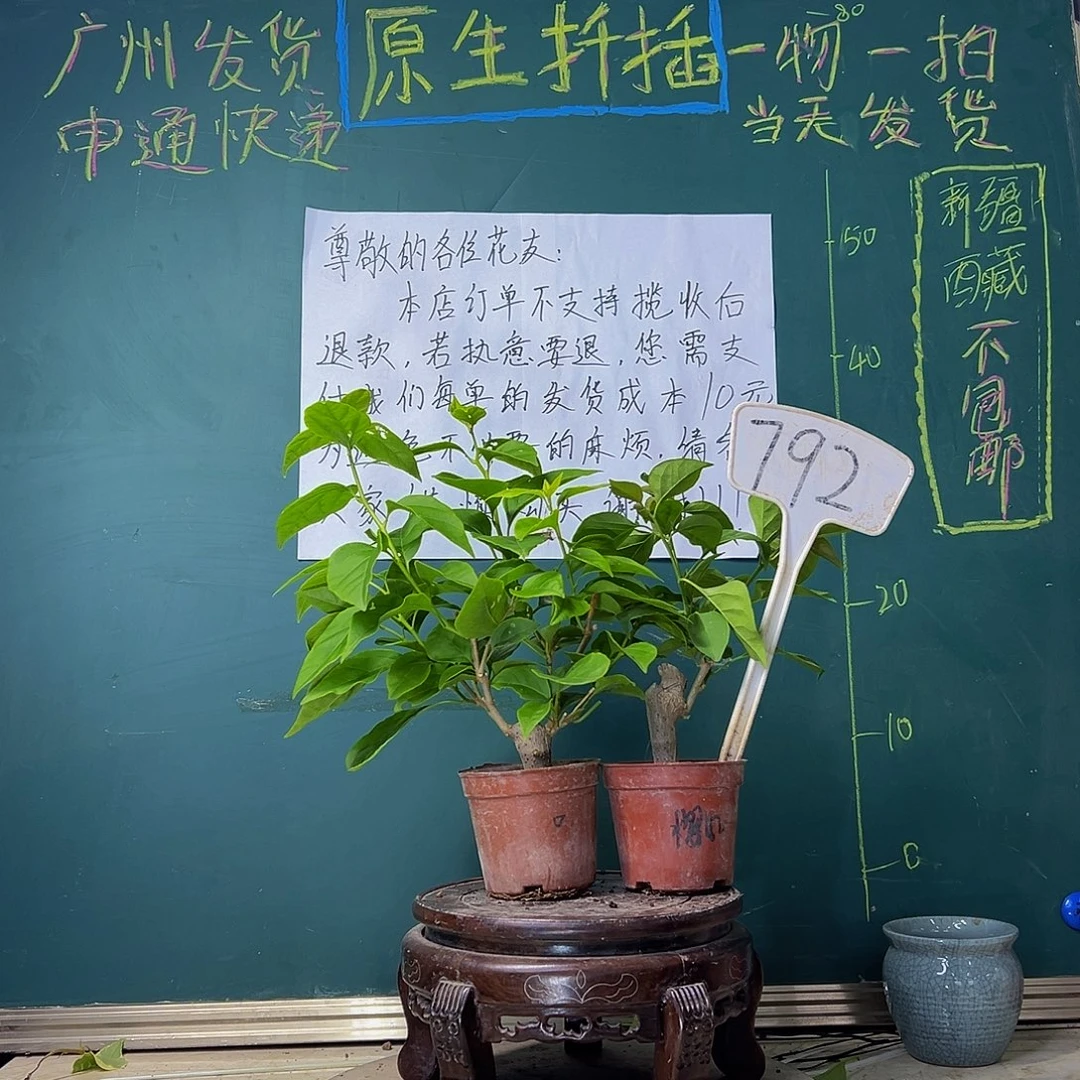 广州发货
申通快递
原生扦插
一物一拍
当天发货
新疆
西藏
不包邮
尊敬的各位花友：
本店订单不支持揽收后
退款，若执意要退，您需支
付我们每单的发货成本10元
的麻烦，
792
80
50
40
20
10
0